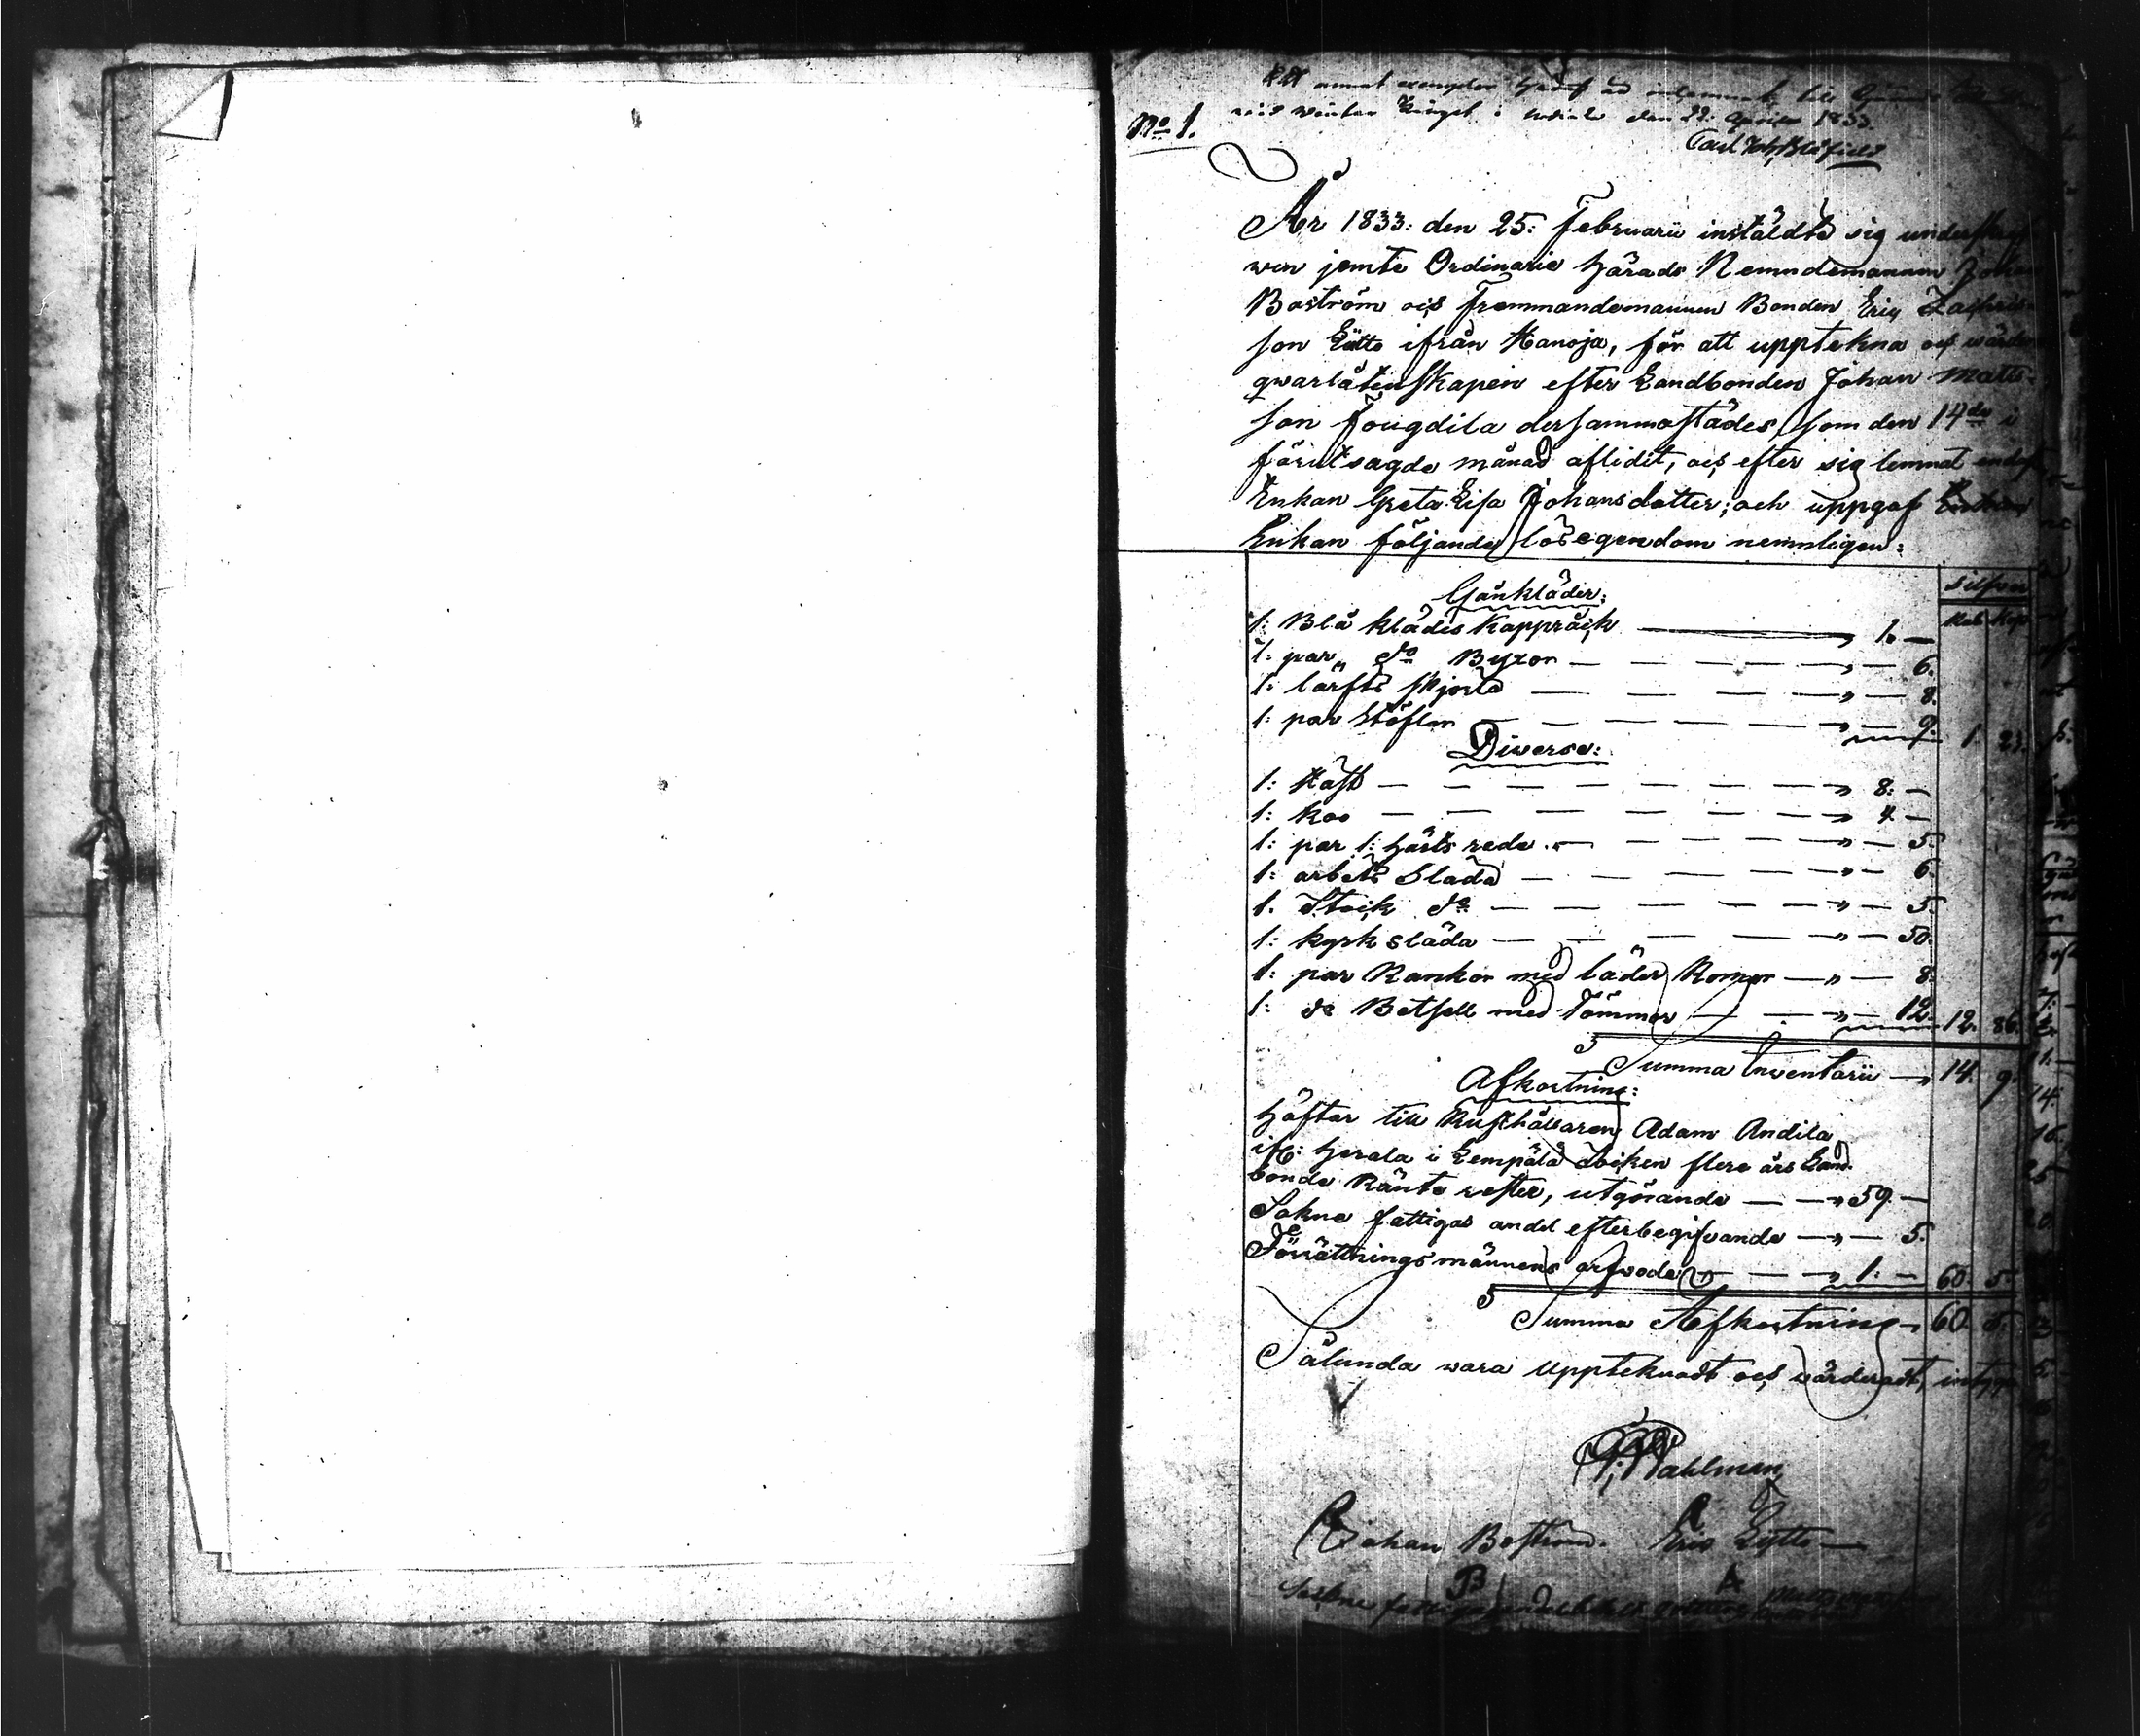 Ett annat exemplar häraf
wid winter Tinget i den 22. April 1833.
No 1.
Carl Joh.
År 1833: den 25: Februarii instäldte sig underskref
wen jemte Ordinarie Härads Nemndemannen Johan
Boström och Fremmandemannen Bonden Eric
son Lyttä ifrån Hanoja, för att uppteckna och wärdera
qwarlåtenskapen efter Landbonden Johan Matts
son Fougdila dersammastädes, som den 14de i
förutsagde månad aflidit, och efter sig lemnat endast
Enkan Greta Lisa Johansdotter; och uppgaf
Enkan följande lösegendom nemnligen:
Silfver
Gånkläder:
Rub. Kop.
1: Blå klädes Kappråck — " 1. —
1: par do Byxor — " — 6.
1: lärfts skjorta — " — 8.
1: par Stöflor — " — 9. 1. 23.
Diverse:
1: Häst — " 8: —
1: Koo — " 4 —
1: par 1: Hästs rede — " — 5.
1: arbets Släda — " — 6.
1. Stock do — " — 5.
1: Kyrk släda — " — 50.
1: par Rankor med läder Remar — " — 8.
1: do Betsell med Tömmar — " — 12. 12. 86.
Summa Inventarii — " 14. 9.
Afkortning:
Häftar till Rusthållaren Adam Andila
ifr: Herala i Lempälä Socken flere års Land
bonde Ränte rester, utgörande — " 59. —
Sokne fattigas andel efterbegifvande — " — 5.
Förrättningsmännens arfvode — " 1: — 60. 5.
Summa Afkortning — 60. 5.
Sålunda wara upptecknadt och wärderadt, intyga
Wahlman
Johan Boström. Eric Lytta
B
Sockne